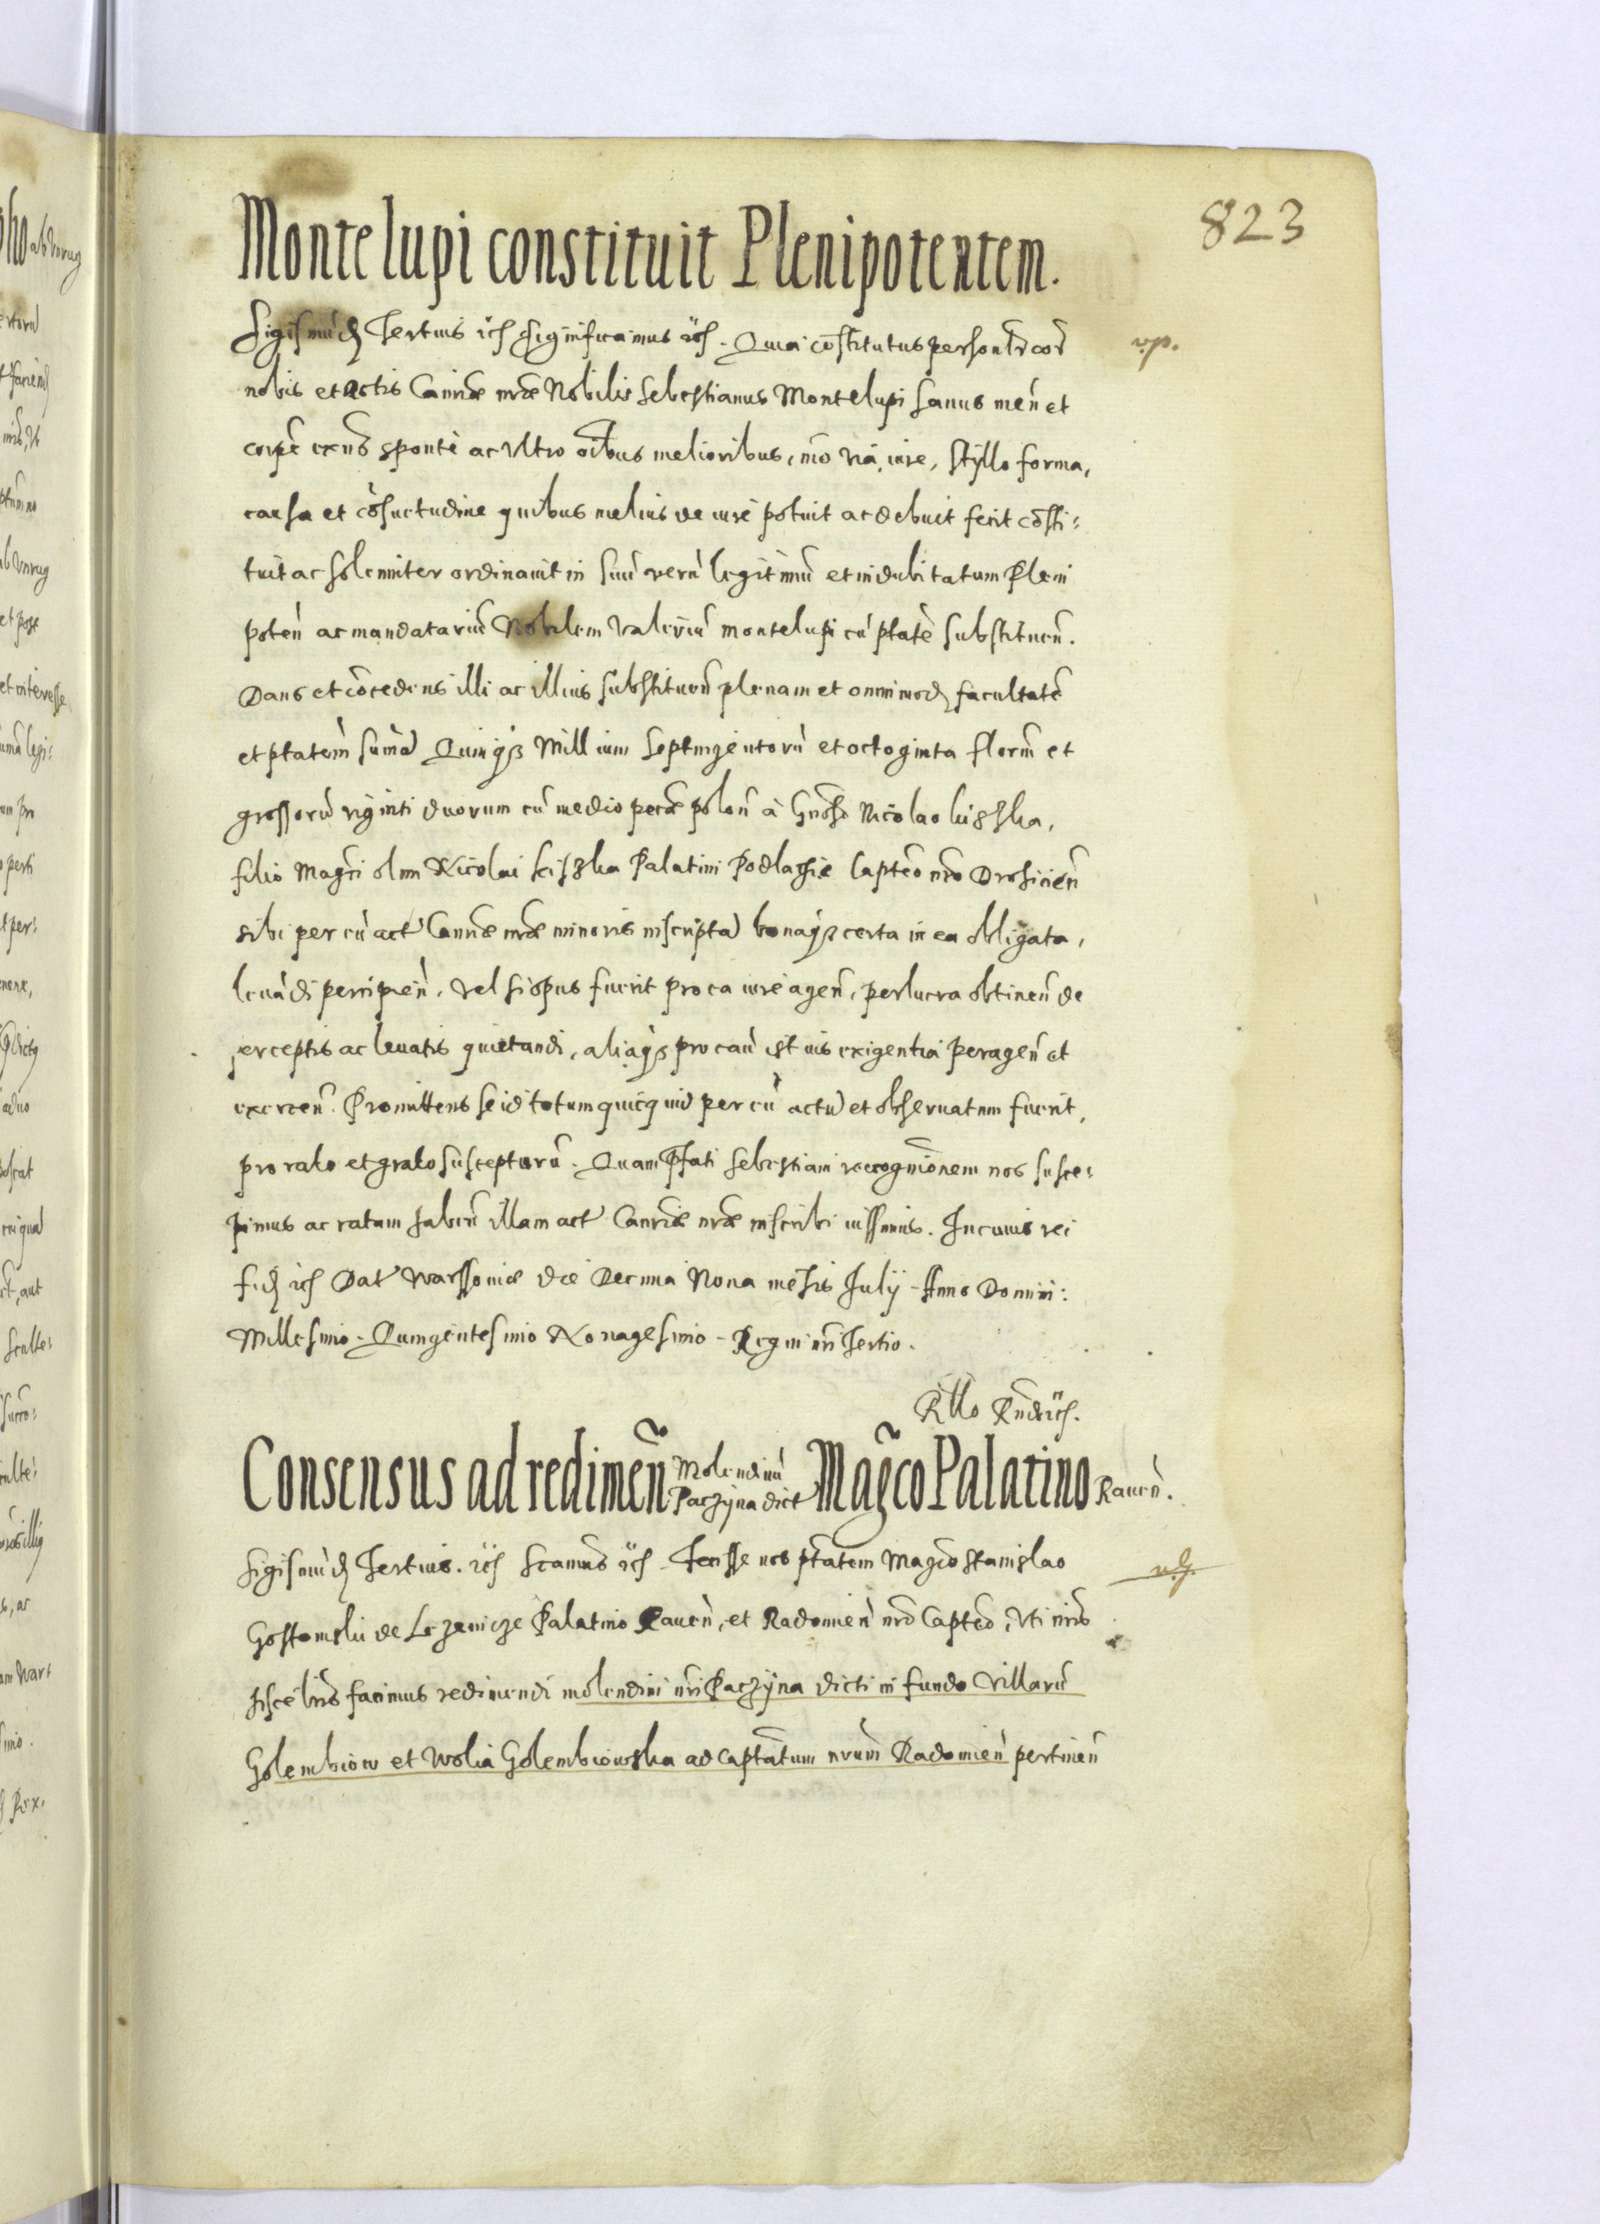 823
Montelupi constituit Plenipotentem.
Sigismūd9 Tertius ꝛc̃ Significamus ꝛc̃. Quia cōstitutus personlr̃ cor̃
v.p.
nobis et Actis Canriæ nræ Nobilis Sebestianus Montelupi sanus men̄ et
corpē exn̄s sponte ac vltro oībus melioribus, mō via, iure, styllo forma,
causa et cōsuetudine quibus melius de iure potuit ac debuit fecit cōsti:
tuit ac solemniter ordinauit in suū verū legitimū et indubitatum Pleni
poten̄ ac mandatariū Nobilem Valeriū Montelupi cū ptāte substituen̄.
Dans et cōcedens illi ac illius substituen̄ plenam et omnimod9 facultatē
et ptatem sum̄a Quinqꝫ Millium Septingentorū et octoginta floren̄ et
grossorū viginti duorum cū medio pecæ polon̄ à Gnoso Nicolao Kiszka,
filio Magci olim Nicolai Kiszka Palatini Podlachiæ Capteo nro Drohicien̄
sibi per eū act Canriæ nræ minoris inscripta bonaqꝫ certa in ea obligata,
leuādi percipien̄, vel si opus fuerit pro ea iure agen̄, per lucra obtinen̄ de
perceptis ac leuatis quietandi, aliaqꝫ pro cau et iuris exigentia peragen̄ et
exercen̄. Promittens se id totum quicquid per eū actū et obseruatum fuerit,
pro rato et grato suscepturū. Quam Pfati Sebestiani recognitionem nos susce:
pimus ac ratam haben̄ illam act Canriæ nræ inscribi iussimus. In cuius rei
fid9 ꝛc̃ Dat Warssouiæ die Decima Nona mēsis Julij Anno Domini:
Millesimo Quingentesimo Nonagesimo Regni nri Tertio.
Consensus ad redimēn Molendinū Paczyna dict Mag̃co Palatino Rauen̄.
Sigismūd9 Tertius. ꝛc̃ Scamus ꝛc̃ Fecisse nos ptatem Magco Stanislao
Gostomski de Lezenicze Palatino Rauen̄, et Radomien̄ nro Capteo, vti nris
hisce lris facimus redimendi molendini nri Paczyna dicti in fundo villarū
Golembiow et Wolia Golembiowska ad Captātum nrum Radomien̄ pertinen̄